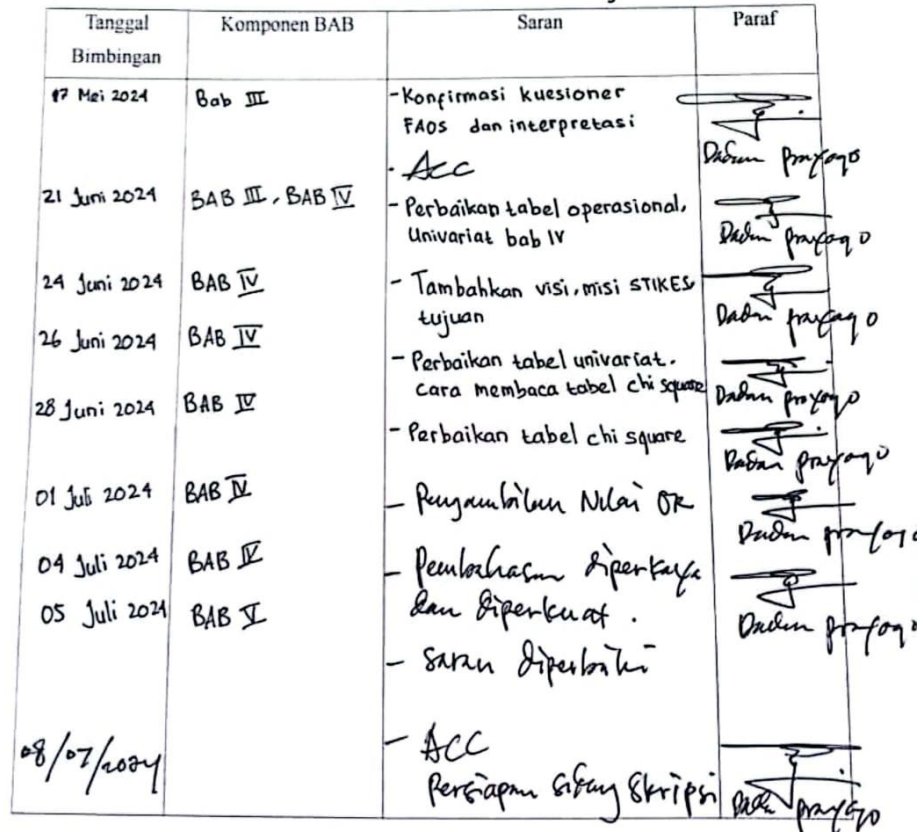 Tanggal Bimbingan Komponen BAB Saran Paraf
17 Mei 2024 Bab III - Konfirmasi kuesioner
FAOS dan interpretasi
Dadan prayogo
- ACC
21 Juni 2024 BAB III, BAB IV - Perbaikan tabel operasional,
Univariat bab IV
Dadan prayogo
24 Juni 2024 BAB IV - Tambahkan visi, misi STIKES,
tujuan
Dadan prayogo
26 Juni 2024 BAB IV - Perbaikan tabel univariat.
Cara membaca tabel chi square
Dadan prayogo
28 Juni 2024 BAB IV - Perbaikan tabel chi square
Dadan prayogo
01 Juli 2024 BAB IV - Pengambilan Nilai OR
Dadan prayogo
04 Juli 2024 BAB IV - Pembahasan diperkaya
dan diperkuat.
05 Juli 2024 BAB V
Dadan prayogo
- Saran diperbaiki
08/07/2024 - ACC
Persiapan sidang Skripsi
Dadan prayogo